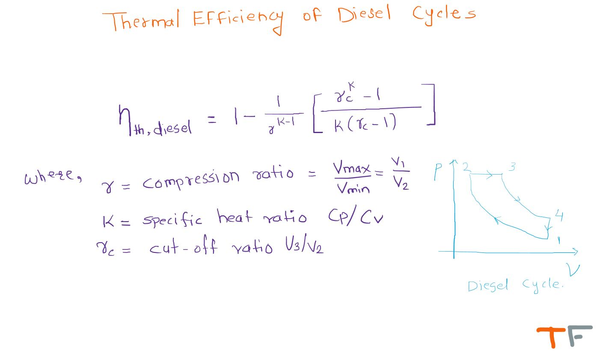 Thermal Efficiency of Diesel Cycles
η th, diesel = 1 - 1/r^(k-1) [ (r_c^k - 1) / (k(r_c - 1)) ]
where, r = compression ratio = Vmax/Vmin = V1/V2
k = specific heat ratio Cp/Cv
r_c = cut-off ratio V3/V2
P
2 3
4
1
V
Diesel Cycle.
TF